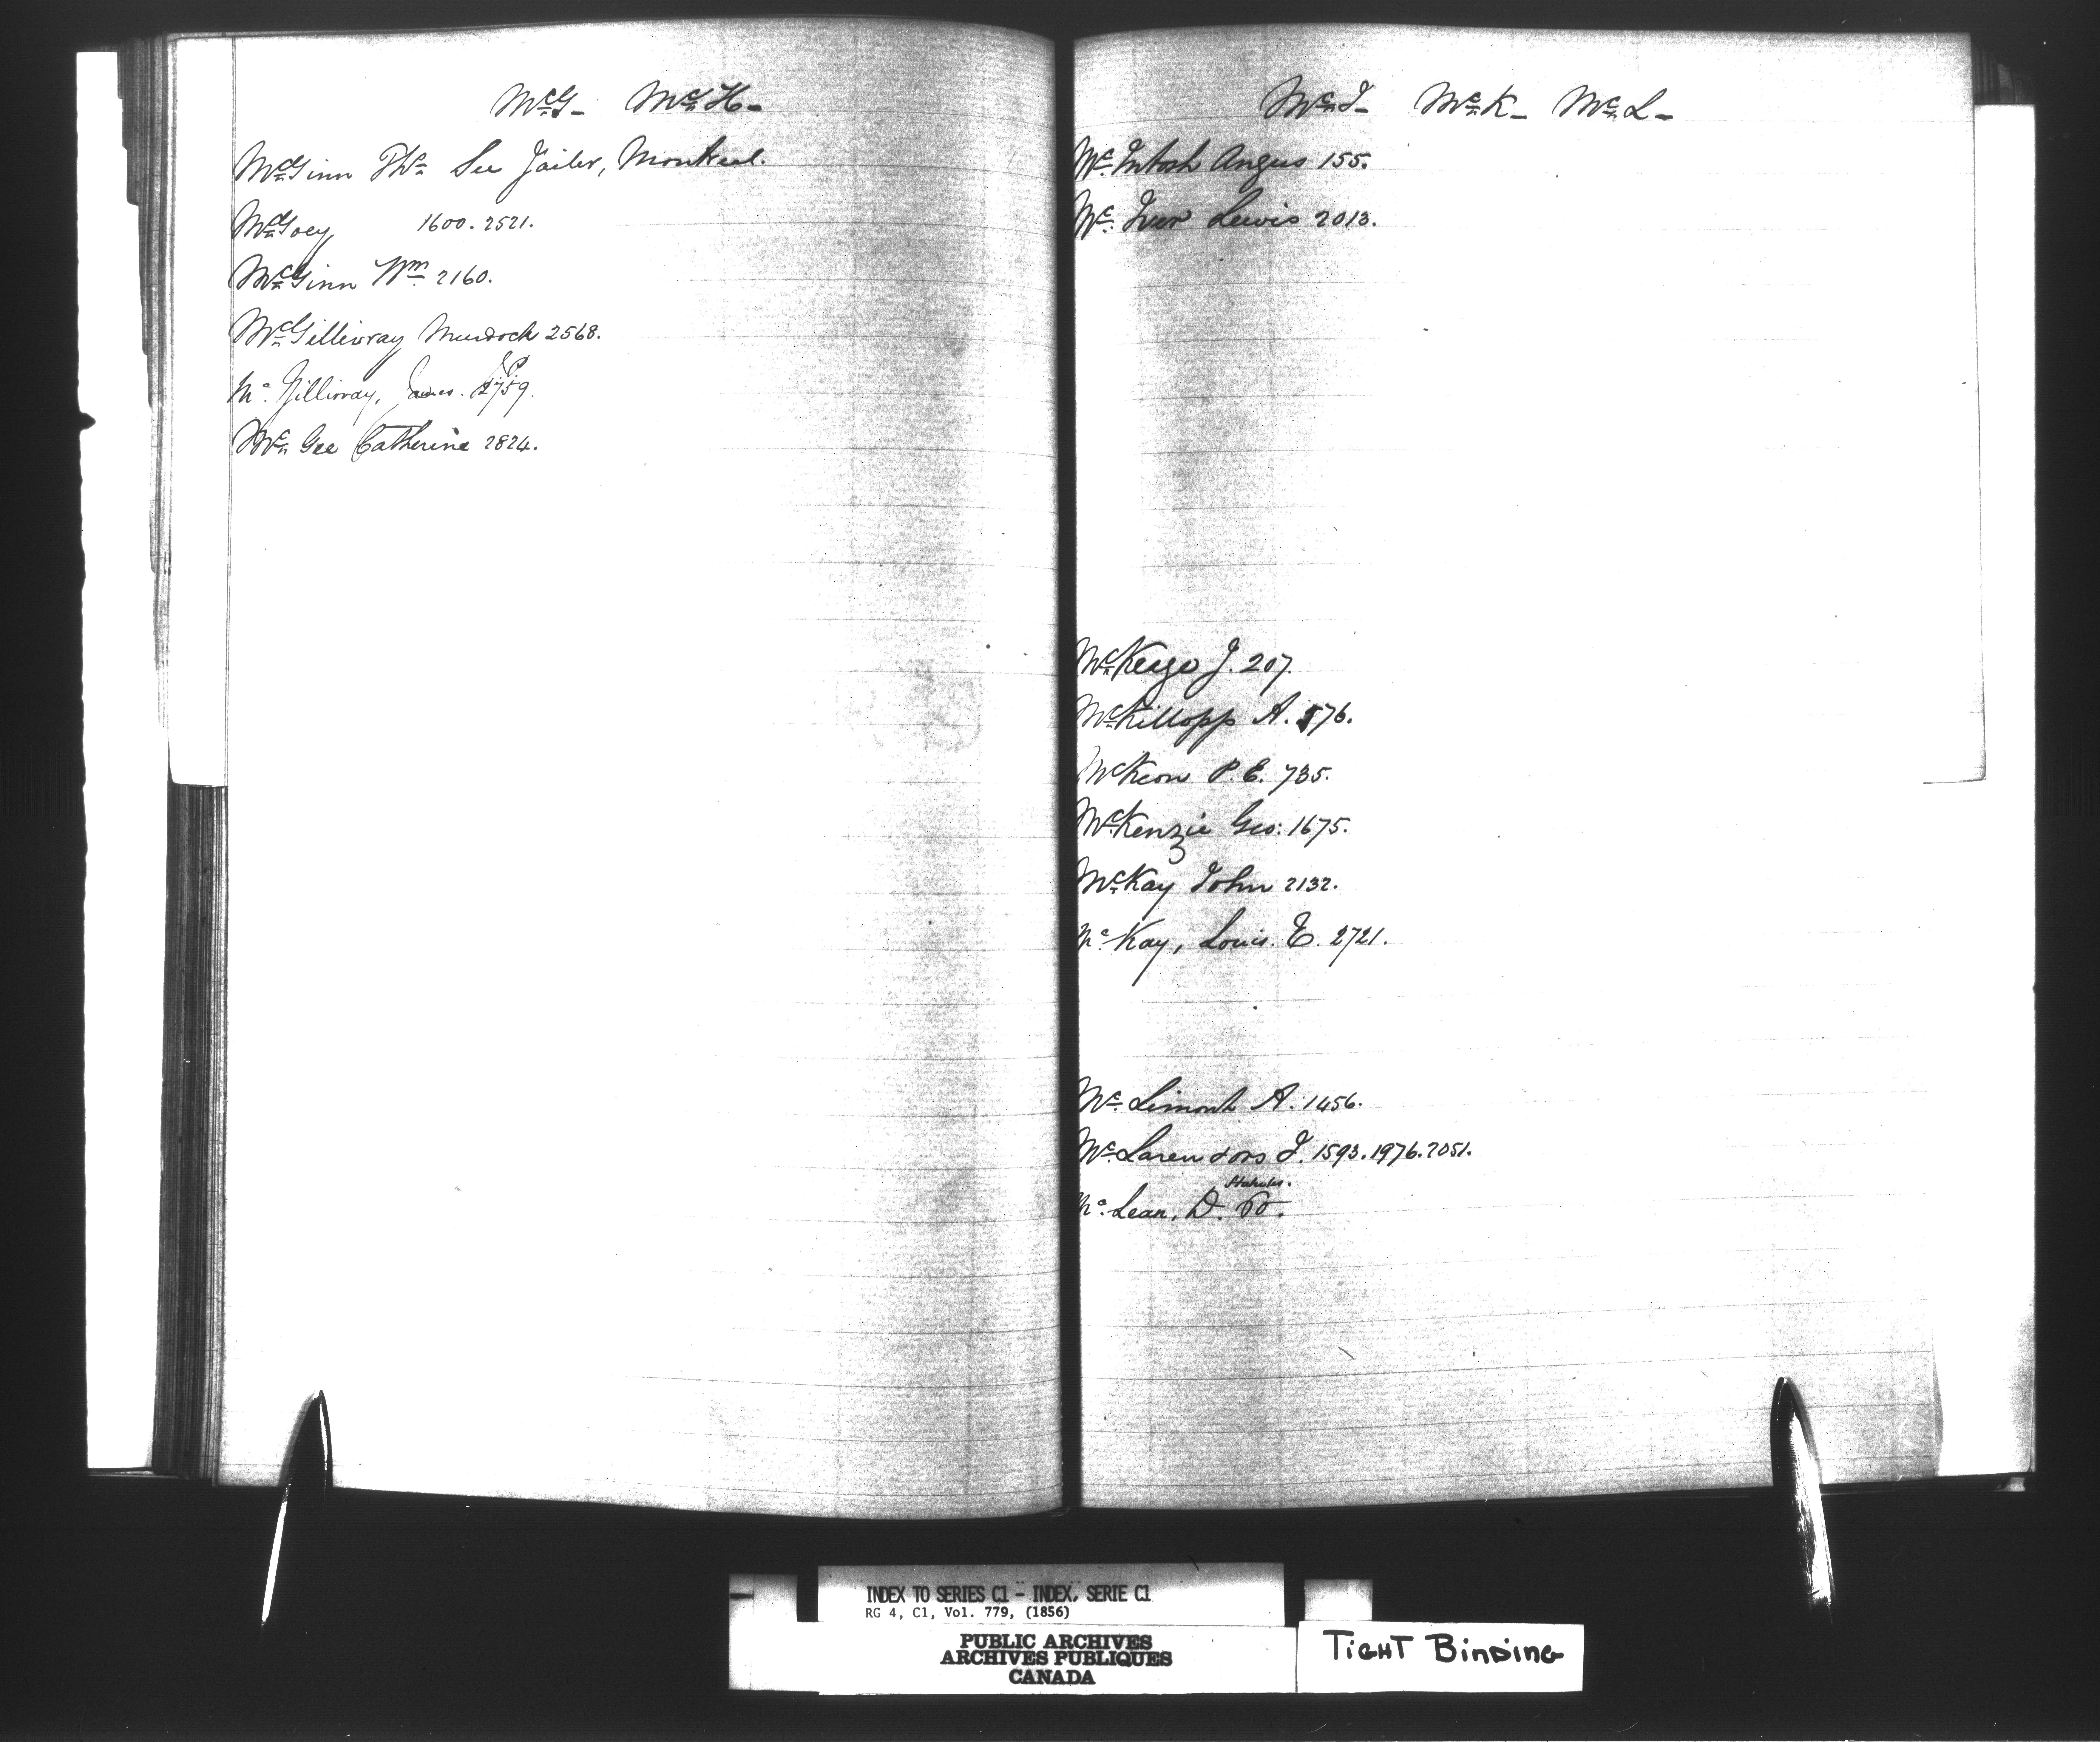 McG- McH-
McGinn Ths See Jailer, Montreal.
McGoey 1600. 2521.
McGinn Wm 2160.
McGillivray Murdoch 2568.
Mc Gillivray, James. 2759.
Mc Gee Catherine 2824.
McI- McK- McL-
Mc Intosh Angus 155.
Mc Iver Lewis 2013.
McKeyo J. 207.
McKillopp A. 576.
McKeon P. E. 735.
McKenzie Geo: 1675.
McKay John 2132.
Mc Kay, Louis. E. 2721.
Mc Limont A. 1456.
Mc Laren J. 1593. 1976. 2051.
Mc Lean, D.
INDEX TO SERIES C1 - INDEX, SERIE C1
RG 4, C1, Vol. 779, (1856)
PUBLIC ARCHIVES
ARCHIVES PUBLIQUES
CANADA
TIGHT BINDING